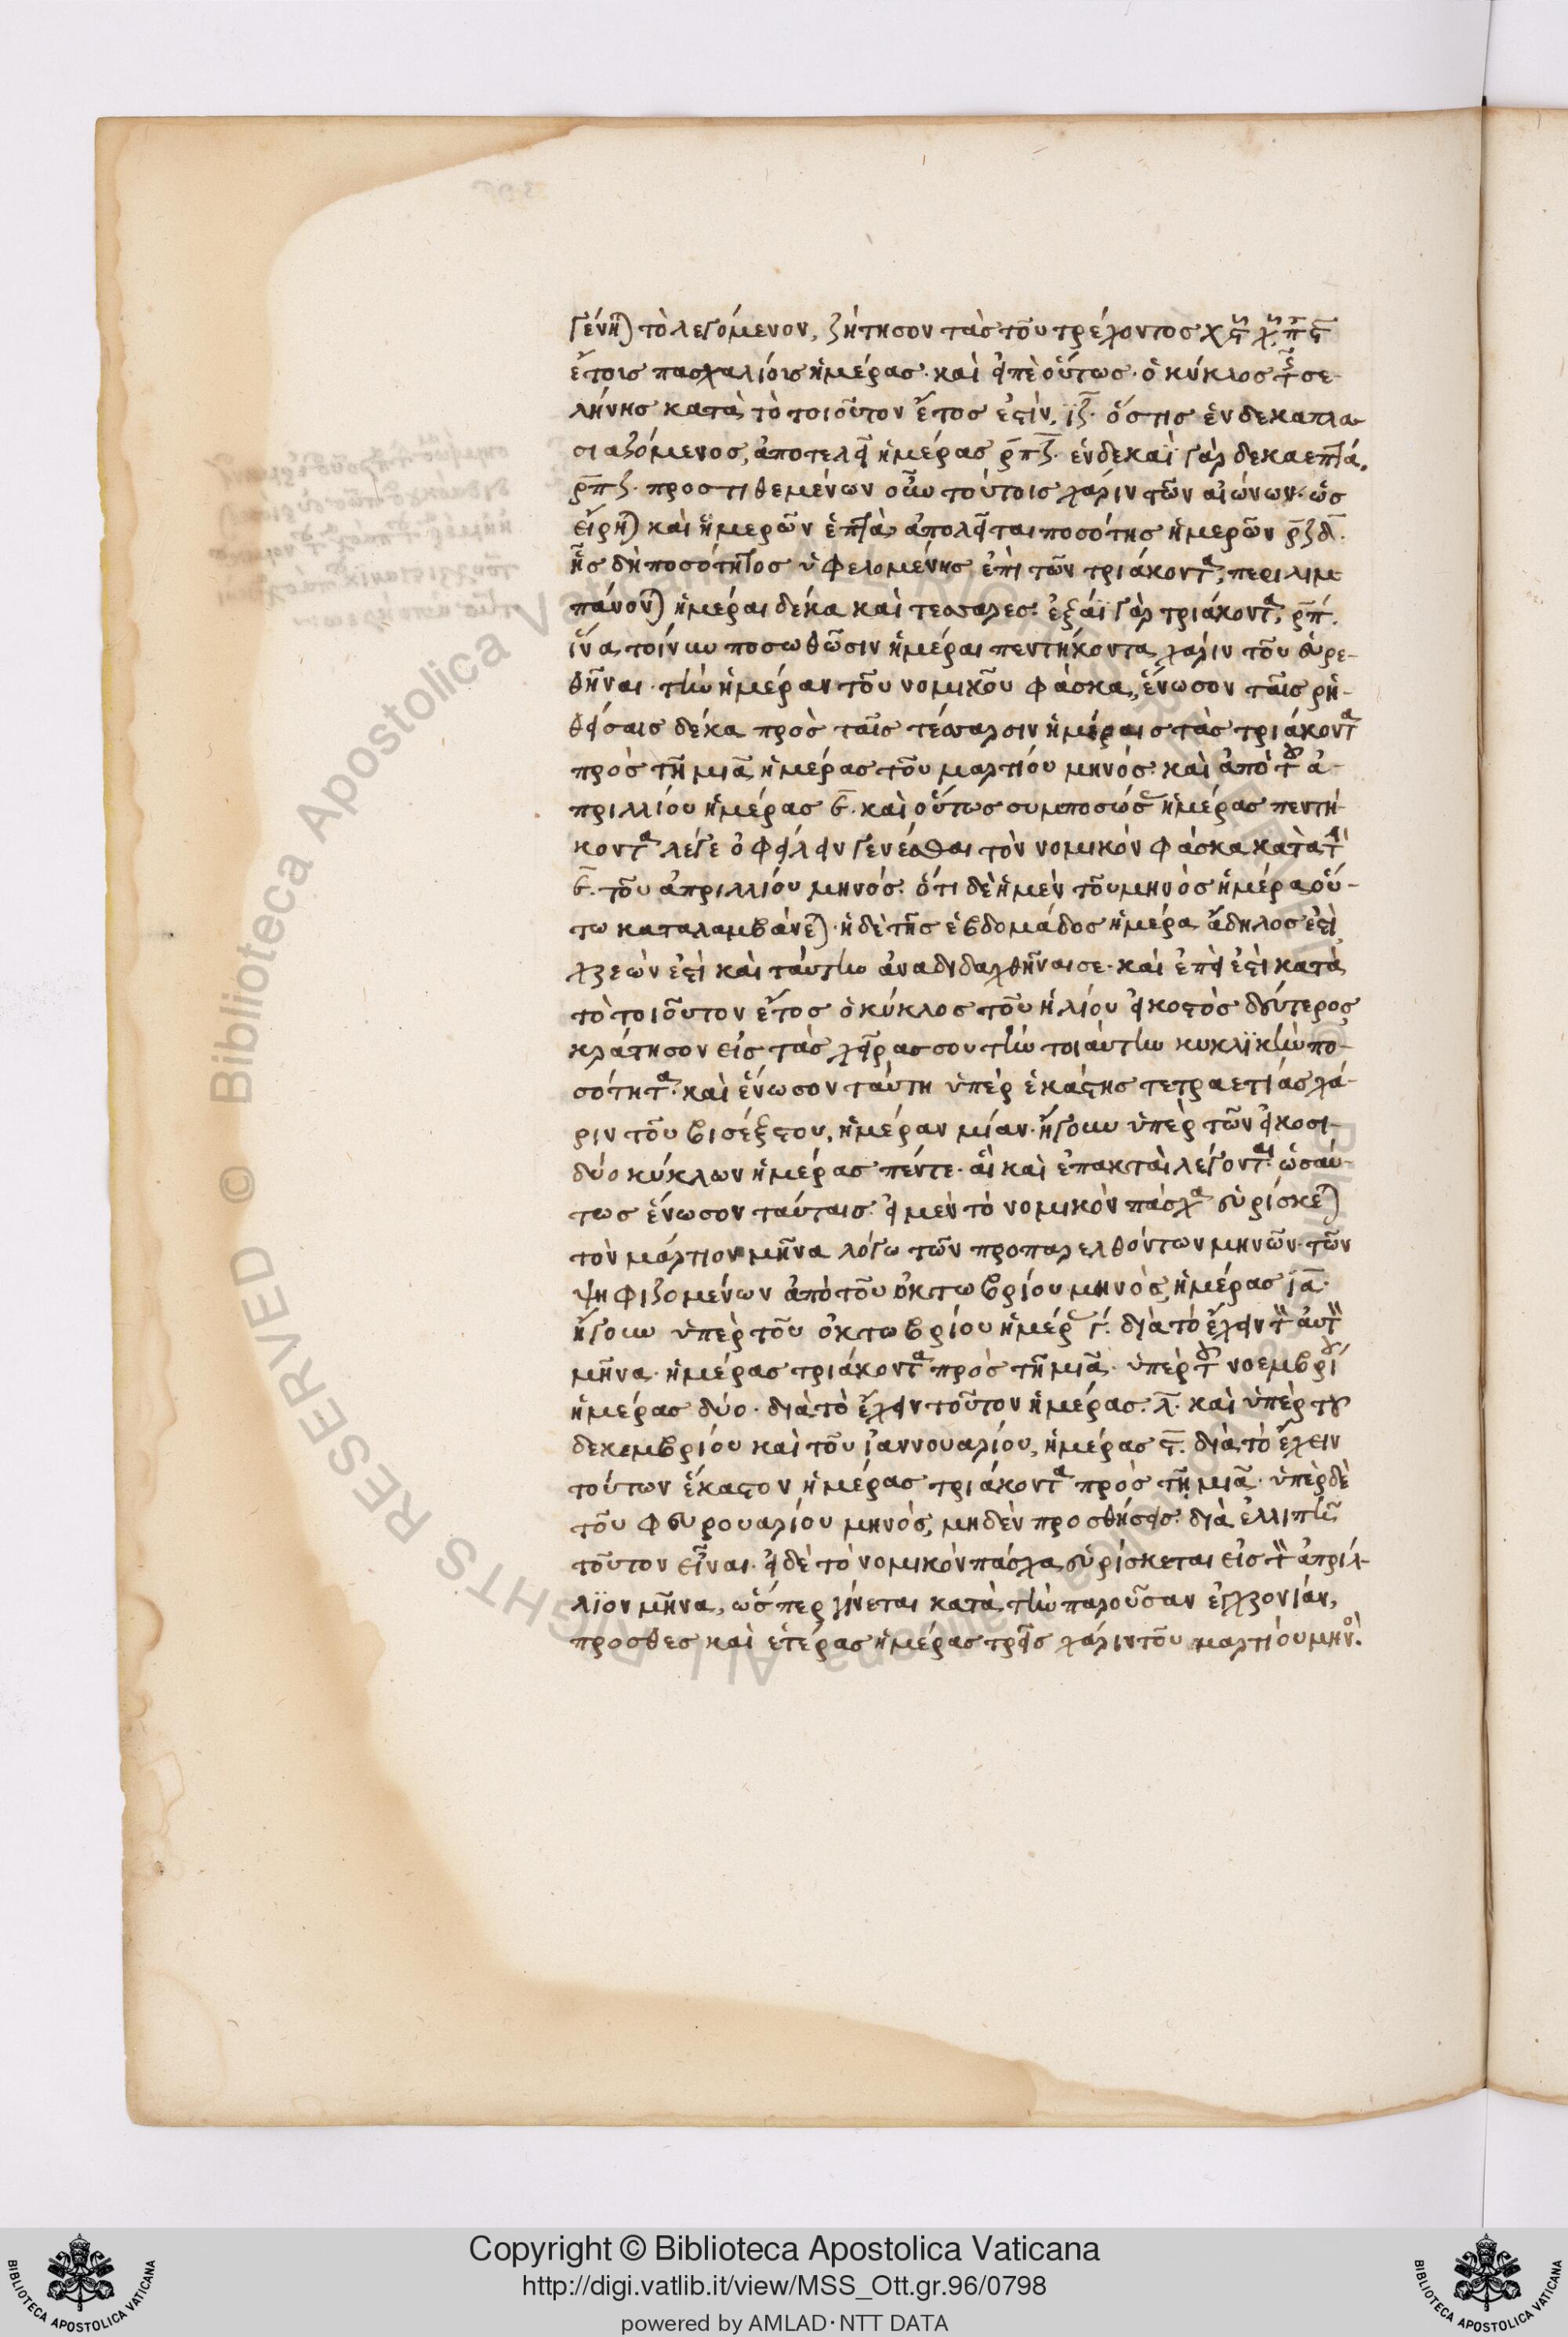 γένη(ται) τὸ λεγόμενον, ζήτησον τὰς τοῦ τρέχοντος
ἔτους πασχαλίους ἡμέρας· καὶ εἰπὲ οὕτως· ὁ κύκλος τῆς σε-
λήνης κατὰ τὸ τοιοῦτον ἔτος ἐστὶν, ιζ̅· ὅστις ἑνδεκαπλα
σιαζόμενος, ἀποτελεῖ ἡμέρας ρ̅π̅ζ̅· ἑνδεκάϊ γὰρ δεκαεπτά,
ρ̅π̅ζ· προστιθεμένων οὖν τούτοις χάριν τῶν αἰώνων· ὡς
εἴρη(ται) καὶ ἡμερῶν ἑπτὰ, ἀποτελεῖται ποσότης ἡμερῶν ρ̅ϟ̅δ̅·
ἧς δὴ ποσότητος ὑφελομένης ἐπὶ τῶν τριάκοντα, περιλιμ
πάνον(ται) ἡμέραι δέκα καὶ τέσσαρες· ἑξάϊ γὰρ τριάκοντα, ρ̅π̅.
ἵνα τοίνυν ποσωθῶσιν ἡμέραι πεντήκοντα χάριν τοῦ εὑρε-
θῆναι· τὴν ἡμέραν τοῦ νομικοῦ φάσκα, ἕνωσον ταῖς ῥη-
θείσαις δέκα πρὸς ταῖς τέσσαρσιν ἡμέραις τὰς τριάκοντα
πρὸς τῇ μιᾷ ἡμέρας τοῦ μαρτίου μηνός· καὶ ἀπὸ τοῦ ἀ-
πριλλίου ἡμέρας ε̅· καὶ οὕτως συμποσώσας ἡμέρας πεντή-
κοντα λέγε ὀφείλειν γενέσθαι τὸν νομικὸν φάσκα κατὰ τὴν
ε̅· τοῦ ἀπριλλίου μηνός· ὅτι δὲ ἡ μὲν τοῦ μηνὸς ἡμέρα οὕ-
τω καταλαμβάνε(ται)· ἡ δὲ τῆς ἑβδομάδος ἡμέρα ἄδηλός ἐστὶ
χρεών ἐστι καὶ ταύτην ἀναδιδαχθῆναι σε· καὶ ἐπεὶ ἐστὶ κατὰ
τὸ τοιοῦτον ἔτος ὁ κύκλος τοῦ ἡλίου εἰκοστὸς δεύτερος
κράτησον εἰς τὰς χεῖρας σου τὴν τοιαύτην κυκλϊκὴν πο-
σότητα· καὶ ἕνωσον ταύτῃ ὑπὲρ ἑκάστης τετραετίας χά-
ριν τοῦ βισέξτου, ἡμέραν μίαν· ἤγουν ὑπὲρ τῶν εἰκοσι-
δύο κύκλων ἡμέρας πέντε· αἳ καὶ ἐπακταὶ λέγονται· ὡσαύ-
τως ἕνωσον ταύταις· εἰ μὲν τὸ νομικὸν πάσχα εὑρίσκε(ται)
τὸν μάρτιον μῆνα λόγω τῶν προπαρελθόντων μηνῶν· τῶν
ψηφιζομένων ἀπὸ τοῦ ὀκτωβρίου μηνὸς, ἡμέρας ια̅·
ἤγουν ὑπὲρ τοῦ ὀκτωβρίου ἡμέρας γ̅· διὰ τὸ ἔχειν τὸν αὐτὸν
μῆνα· ἡμέρας τριάκοντα πρὸς τῇ μιᾷ· ὑπὲρ τοῦ νοεμβρίου
ἡμέρας δύο· διὰ τὸ ἔχειν τοῦτον ἡμέρας λ̅· καὶ ὑπὲρ του
δεκεμβρίου καὶ τοῦ ἰαννουαρίου, ἡμέρας ϛ̅· διὰ τὸ ἔχειν
τούτων ἕκαστον ἡμέρας τριάκοντα πρὸς τῇ μιᾷ· ὑπὲρ δὲ
τοῦ φευρουαρίου μηνὸς, μηδὲν προσθήσεις· διὰ ἐλλιπῆ
τοῦτον εἶναι· εἰ δὲ τὸ νομικὸν πάσχα εὑρίσκεται εἰς τὸν ἀπρίλ-
λϊον μῆνα, ὥσπερ γίνεται κατὰ τὴν παροῦσαν εἰχρονίαν,
πρόσθες καὶ ἑτέρας ἡμέρας τρεῖς χάριν τοῦ μαρτίου μηνὸ.
Copyright © Biblioteca Apostolica Vaticana
http://digi.vatlib.it/view/MSS_Ott.gr.96/0798
powered by AMLAD·NTT DATA